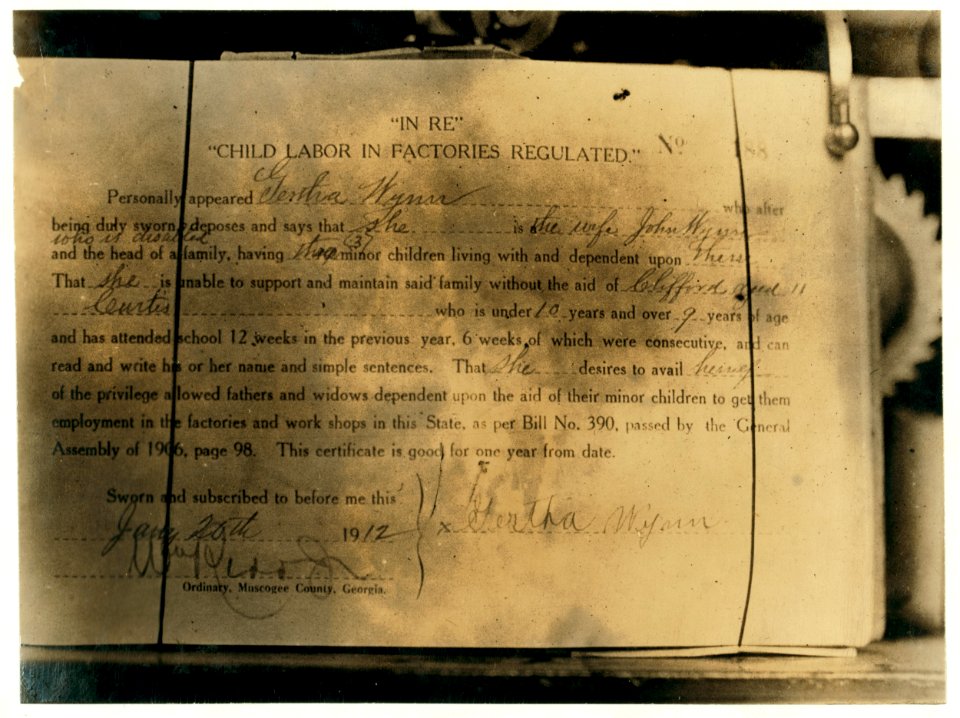 "IN RE"
"CHILD LABOR IN FACTORIES REGULATED." No 188
Personally appeared Gertha Wynn who after
being duly sworn, deposes and says that she is the wife John Wynn
who is disabled
and the head of a family, having three (3) minor children living with and dependent upon them
That she is unable to support and maintain said family without the aid of Clifford aged 11
Curtis who is under 10 years and over 9 years of age
and has attended school 12 weeks in the previous year, 6 weeks of which were consecutive, and can
read and write his or her name and simple sentences. That she desires to avail
of the privilege allowed fathers and widows dependent upon the aid of their minor children to get them
employment in the factories and work shops in this State, as per Bill No. 390, passed by the General
Assembly of 1906, page 98. This certificate is good for one year from date.
Sworn and subscribed to before me this
Jany 20th 1912 x Gertha Wynn
Ordinary, Muscogee County, Georgia.